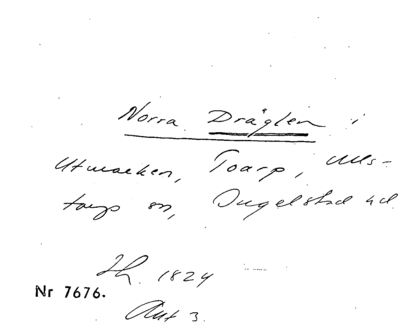 Norra Dräglen i
Utmarken, Toarp, Ulls-
torps sn, Ingelstad hd.
Lh. 1824
Nr 7676.
Akt 3.